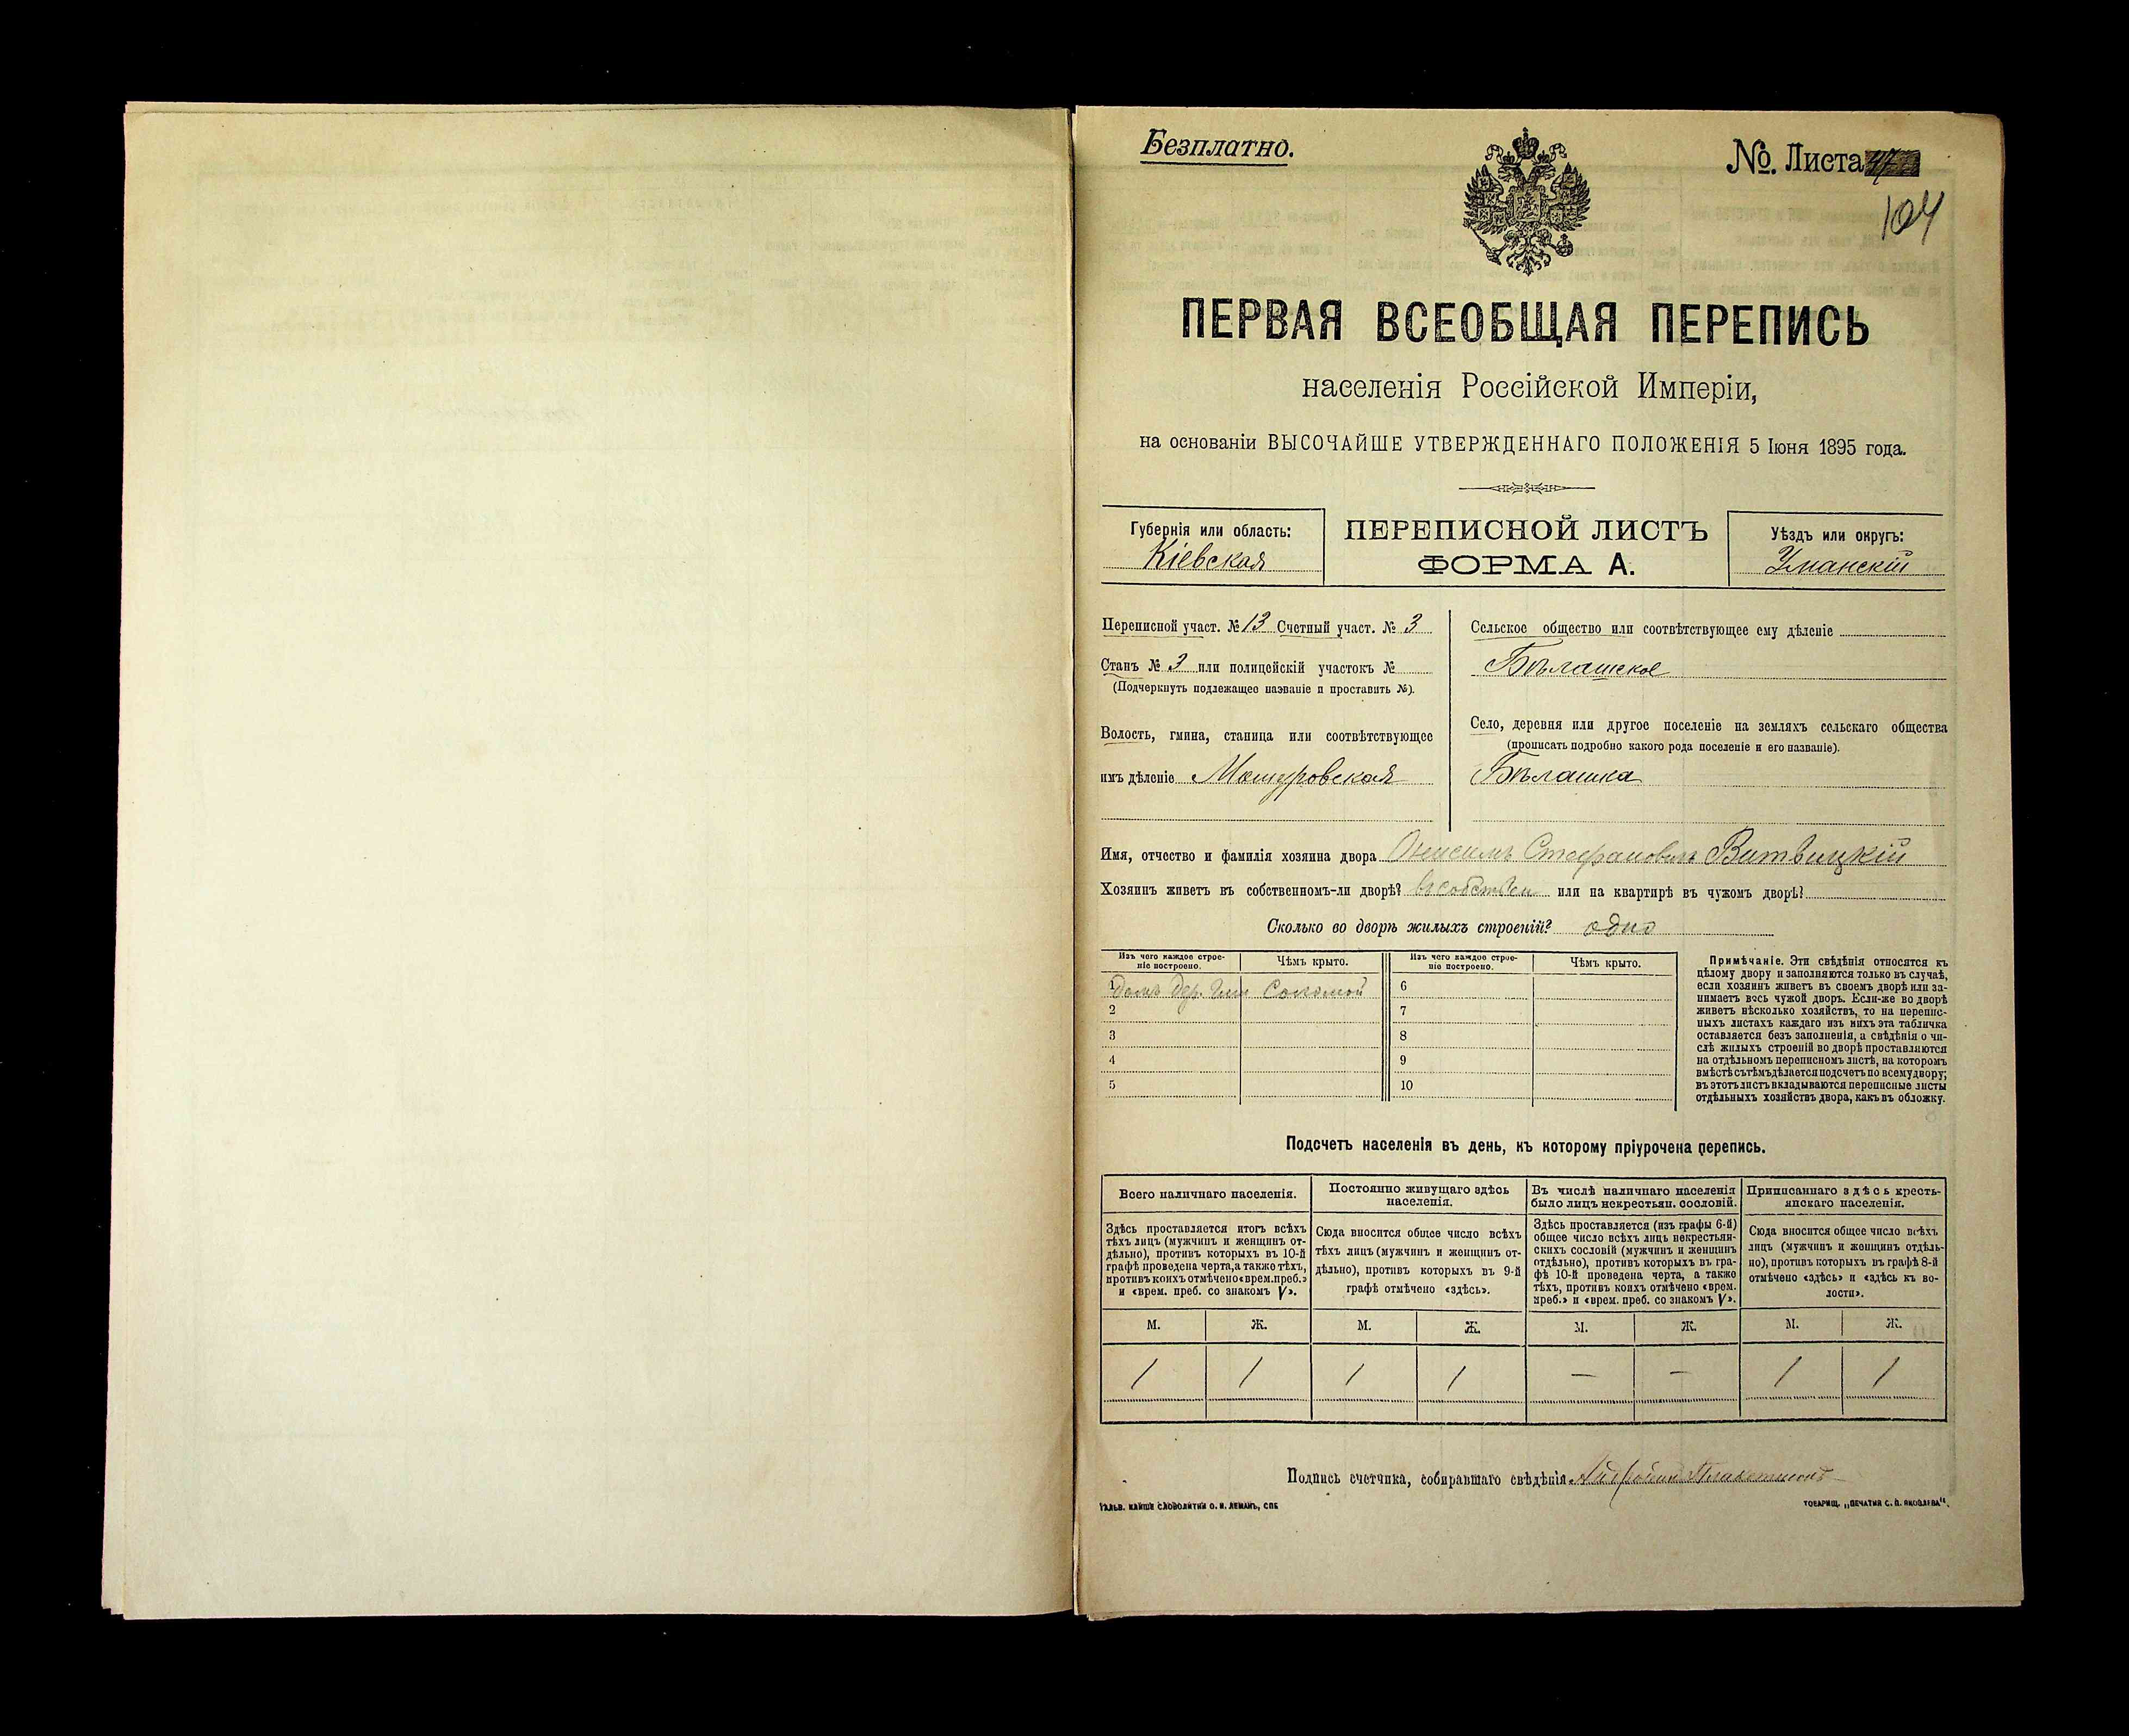 Безплатно.
№. Листа 47
104
ПЕРВАЯ ВСЕОБЩАЯ ПЕРЕПИСЬ
населенія Россійской Имперіи,
на основаніи ВЫСОЧАЙШЕ УТВЕРЖДЕННАГО ПОЛОЖЕНІЯ 5 Іюня 1895 года.
Губернія или область:
Кіевская
ПЕРЕПИСНОЙ ЛИСТЪ
ФОРМА А.
Уѣздъ или округъ:
Уманскій
Переписной участ. № 13 Счетный участ. № 3
Станъ № 3 или полицейскій участокъ №
(Подчеркнуть подлежащее названіе и проставить №).
Волость, гмина, станица или соотвѣтствующее
имъ дѣленіе Машуровская
Сельское общество или соотвѣтствующее ему дѣленіе
Бѣлашское
Село, деревня или другое поселеніе на земляхъ сельскаго общества
(прописать подробно какого рода поселеніе и его названіе).
Бѣлашка
Имя, отчество и фамилія хозяина двора Онисимъ Стефановичъ Витвицкій
Хозяинъ живетъ въ собственномъ-ли дворѣ? въ собствен или на квартирѣ въ чужомъ дворѣ?
Сколько во дворѣ жилыхъ строеній? одно
Изъ чего каждое строе-
ніе построено.
Чѣмъ крыто.
Изъ чего каждое строе-
ніе построено.
Чѣмъ крыто.
1 домъ дер. Соломой
2
3
4
5
6
7
8
9
10
Примѣчаніе. Эти свѣдѣнія относятся къ
цѣлому двору и заполняются только въ случаѣ,
если хозяинъ живетъ въ своемъ дворѣ или за-
нимаетъ весь чужой дворъ. Если-же во дворѣ
живетъ нѣсколько хозяйствъ, то на перепис-
ныхъ листахъ каждаго изъ нихъ эта табличка
оставляется безъ заполненія, а свѣдѣнія о чи-
слѣ жилыхъ строеній во дворѣ проставляются
на отдѣльномъ переписномъ листѣ, на которомъ
вмѣстѣ съ тѣмъ дѣлается подсчетъ по всему двору;
въ этотъ листъ вкладываются переписные листы
отдѣльныхъ хозяйствъ двора, какъ въ обложку.
Подсчетъ населенія въ день, къ которому пріурочена перепись.
Всего наличнаго населенія.
Здѣсь проставляется итогъ всѣхъ
тѣхъ лицъ (мужчинъ и женщинъ от-
дѣльно), противъ которыхъ въ 10-й
графѣ проведена черта, а также тѣхъ,
противъ коихъ отмѣчено «врем. преб.»
и «врем. преб. со знакомъ V».
Постоянно живущаго здѣсь
населенія.
Сюда вносится общее число всѣхъ
тѣхъ лицъ (мужчинъ и женщинъ от-
дѣльно), противъ которыхъ въ 9-й
графѣ отмѣчено «здѣсь».
Въ числѣ наличнаго населенія
было лицъ некрестьян. сословій.
Здѣсь проставляется (изъ графы 6-й)
общее число всѣхъ лицъ некрестьян-
скихъ сословій (мужчинъ и женщинъ
отдѣльно), противъ которыхъ въ гра-
фѣ 10-й проведена черта, а также
тѣхъ, противъ коихъ отмѣчено «врем.
преб.» и «врем. преб. со знакомъ V».
Приписаннаго здѣсь кресть-
янскаго населенія.
Сюда вносится общее число всѣхъ
лицъ (мужчинъ и женщинъ отдѣль-
но), противъ которыхъ въ графѣ 8-й
отмѣчено «здѣсь» и «здѣсь къ во-
лости».
М. Ж. М. Ж. М. Ж. М. Ж.
1 1 1 1 — — 1 1
Подпись счетчика, собиравшаго свѣдѣнія
ГАЛЬВ. КЛИШЕ СЛОВОЛИТНИ О. И. ЛЕМАНЪ, СПБ
ТОВАРИЩ. „ПЕЧАТНЯ С. П. ЯКОВЛЕВА".